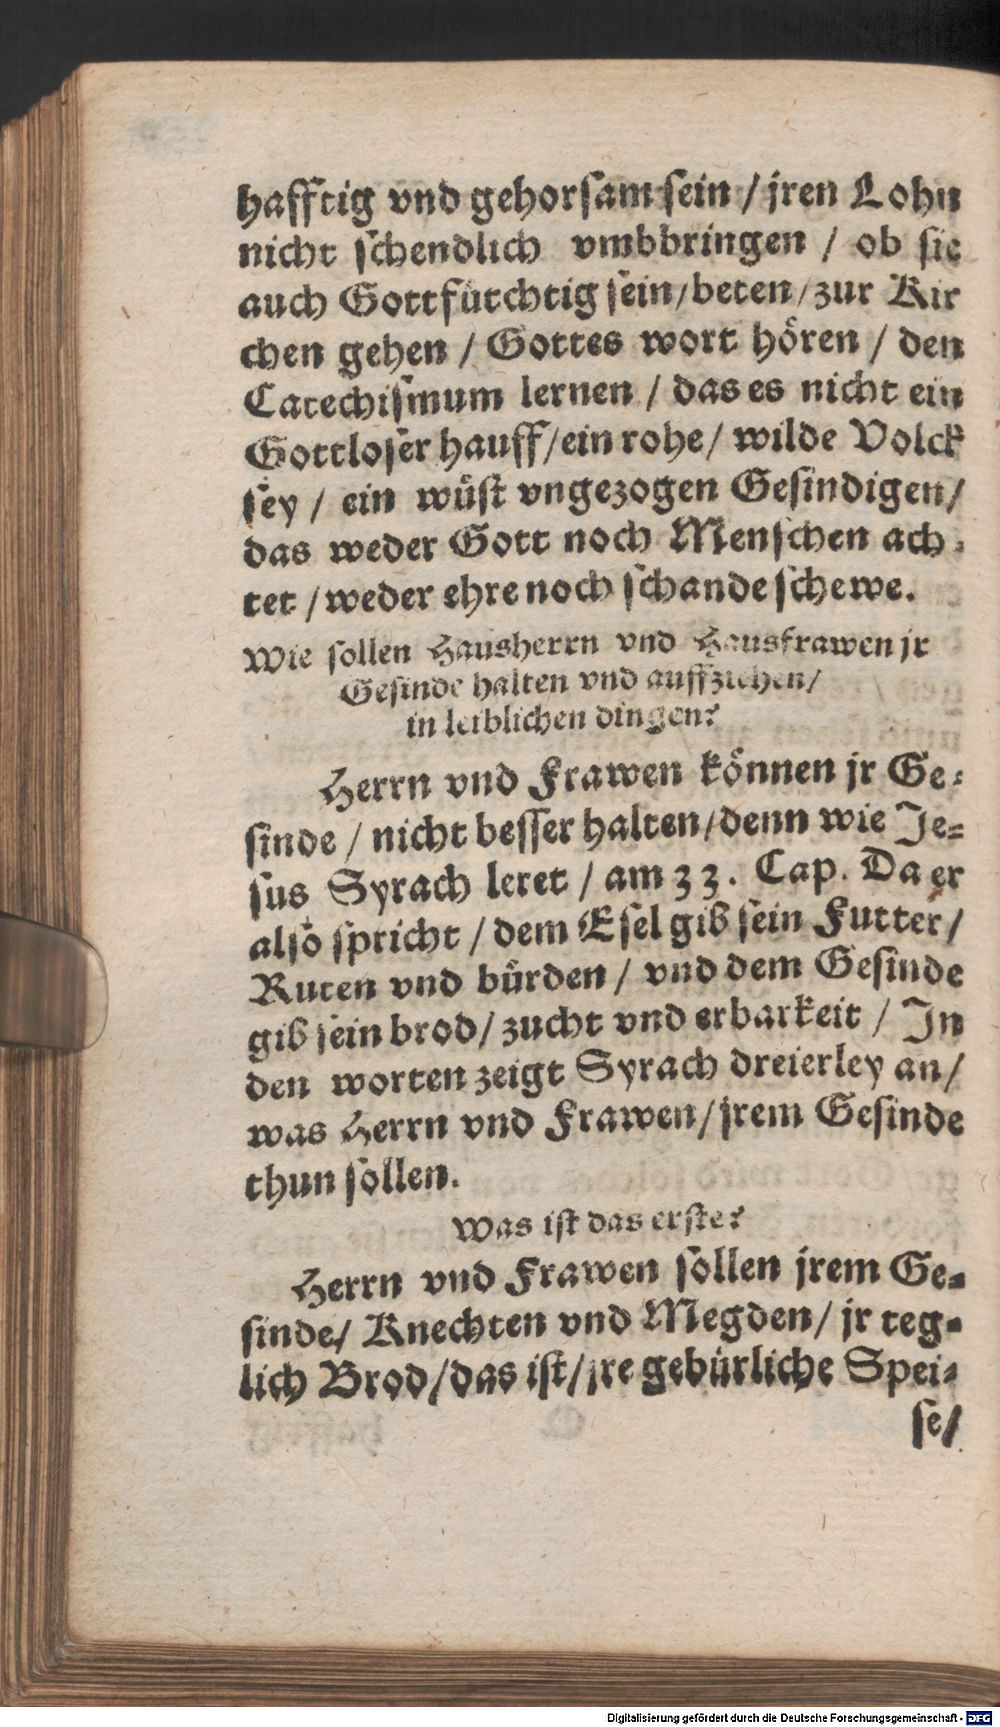 hafftig vnd gehorsam sein / jren Lohn
nicht schendlich vmbbringen / ob sie
auch Gottfürchtig sein/beten/zur Kir
chen gehen / Gottes wort hören / den
Catechismum lernen / das es nicht ein
Gottloser hauff/ein rohe/ wilde Volck
sey / ein wüst vngezogen Gesindigen/
das weder Gott noch Menschen ach-
tet / weder ehre noch schande schewe.
Wie sollen Hausherrn vnd Hausfrawen jr
Gesinde halten vnd auffziehen/
in leiblichen dingen?
Herrn vnd Frawen können jr Ge-
sinde / nicht besser halten/denn wie Je-
sus Syrach leret / am 33. Cap. Da er
also spricht / dem Esel gib sein Futter/
Ruten vnd bürden / vnd dem Gesinde
gib sein brod/ zucht vnd erbarkeit / In
den worten zeigt Syrach dreierley an/
was Herrn vnd Frawen/jrem Gesinde
thun sollen.
Was ist das erste?
Herrn vnd Frawen sollen jrem Ge-
sinde/ Knechten vnd Megden/ jr teg-
lich Brod/das ist/jre gebürliche Spei-
se/
Digitalisierung gefördert durch die Deutsche Forschungsgemeinschaft - DFG